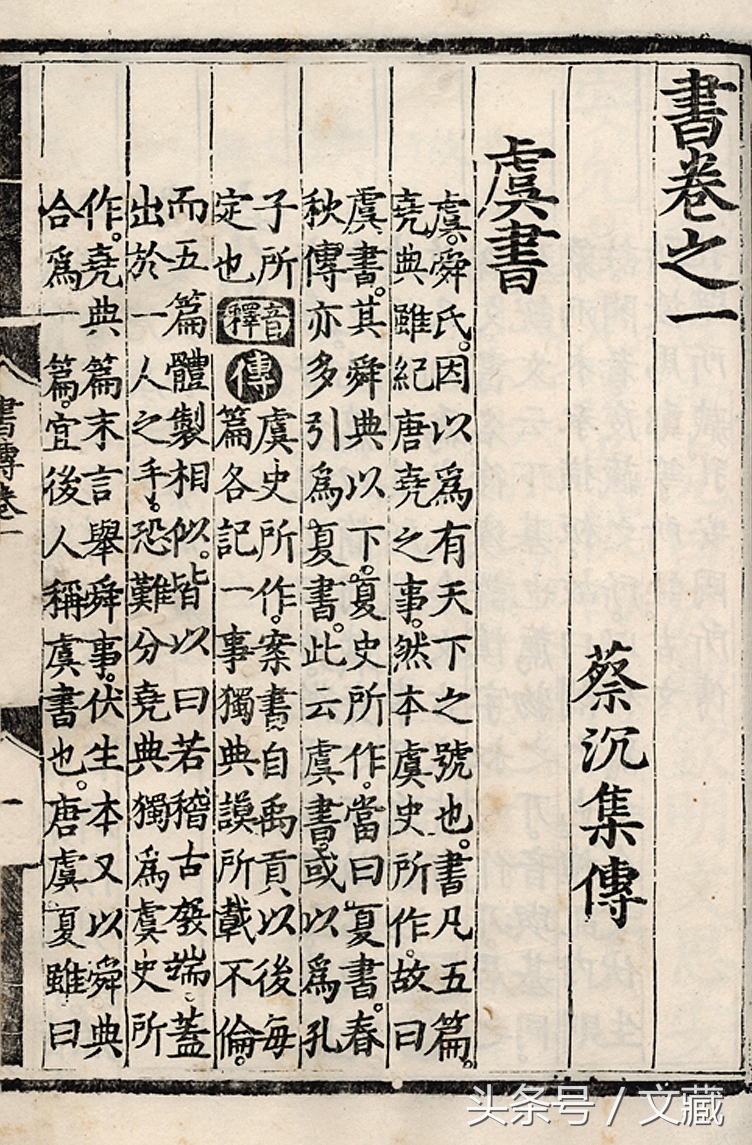 書卷之一
蔡沉集傳
虞書
虞。舜氏。因以爲有天下之號也。書凡五篇。
堯典雖紀唐堯之事。然本虞史所作。故曰
虞書。其舜典以下。夏史所作。當曰夏書。春
秋傳亦多引爲夏書。此云虞書。或以爲孔
子所
定也
音釋
傳
虞史所作。案書自禹貢以後每
篇各記一事獨典謨所載不倫。
而五篇體製相似。皆以曰若稽古發端。蓋
出於一人之手。恐難分堯典獨爲虞史所
作。堯典篇末言舉舜事。伏生本又以舜典
合爲一篇。宜後人稱虞書也。唐虞夏雖曰
書傳卷一
一
头条号 / 文藏